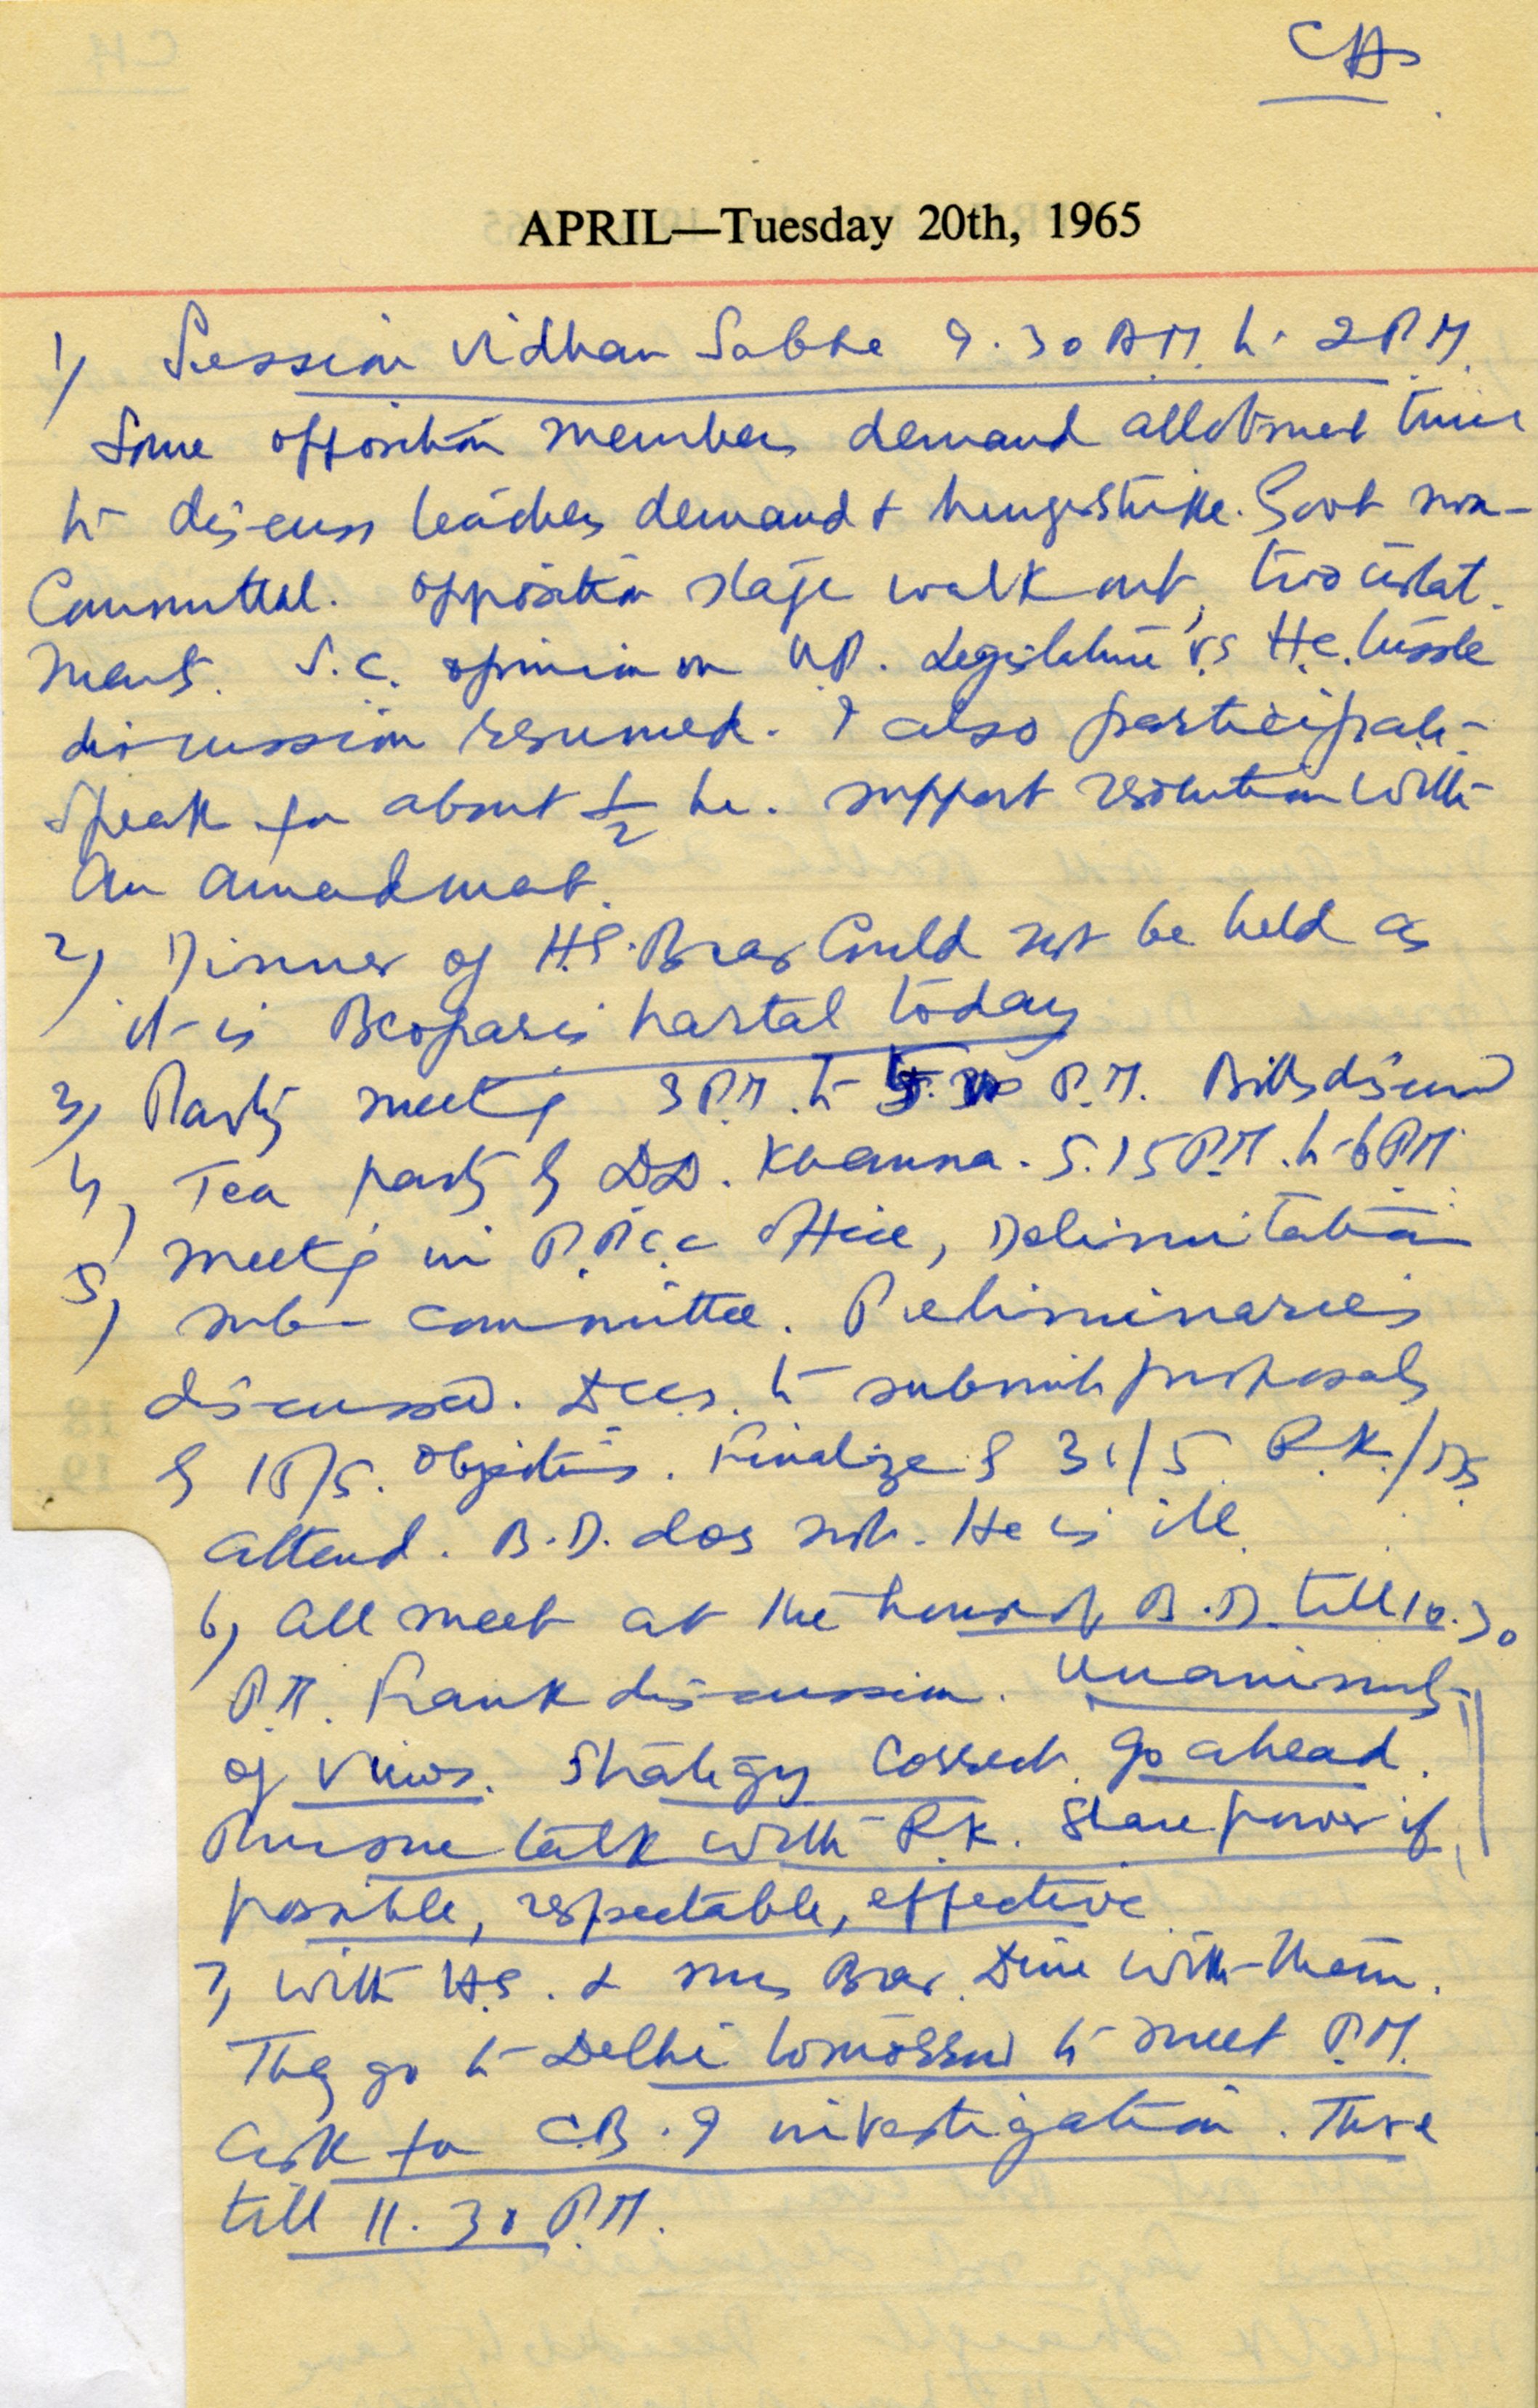 CH
APRIL—Tuesday 20th, 1965
1) Session Vidhan Sabha 9.30 A.M. to 2 P.M.
Some opposition members demand allotment time
to discuss teachers demand & hungerstrike. Govt non-
Committal. Opposition stage walk out, two
ments. S.C. opinion on U.P. Legislature vs H.C. tussle
discussion resumed. I also participate
Speak for about 1/2 hr. support resolution with
an amendment.
2) Dinner of H.S. Brar Could not be held as
it is Beoparis hartal today
3) Party meeting 3 P.M. to P.M. Bills discussed
4) Tea party by D.D. Khanna. 5.15 P.M. to 6 P.M.
5) Meeting in P.P.C.C. Office, Delimitation
sub-committee. Preliminaries
discussed. DCCs. to submit proposals
by 15/5. Objections. Finalize by 31/5. R.K./
attend. B.D. does not. He is ill.
6) All meet at the house of B.D. till 10.30
P.M. Frank discussion. Unanimity
of views. Strategy Correct. Go ahead.
Pursue talk with R.K. Share power if
possible, respectable, effective
7) With H.S. & Mrs Brar. Dine with them.
They go to Delhi tomorrow to meet P.M.
Ask for C.B.I investigation. There
till 11.30 P.M.